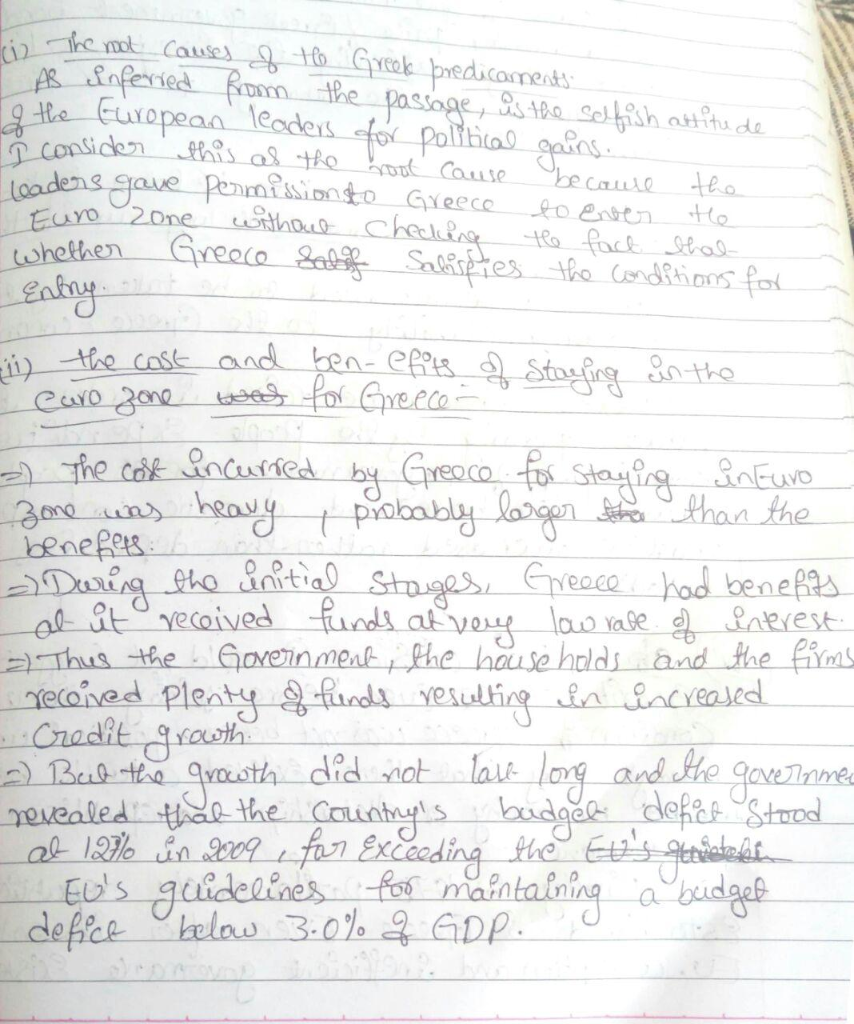 (i) The root causes of the Greek predicaments:
As inferred from the passage, is the selfish attitude
of the European leaders for political gains.
I consider this as the root cause because the
leaders gave permission to Greece to enter the
Euro Zone without checking the fact that
whether Greece satisfies the conditions for
entry.
(ii) the cost and ben-efits of staying in the
euro zone for Greece -
=) The cost incurred by Greece for staying in Euro
zone was heavy, probably larger than the
benefits.
=) During the initial stages, Greece had benefits
as it received funds at very low rate of interest.
=) Thus the Government, the households and the firms
received plenty of funds resulting in increased
credit growth.
=) But the growth did not last long and the governme
revealed that the country's budget defict stood
at 12% in 2009, far exceeding the EU's
EU's guidelines for maintaining a budget
defict below 3.0% of GDP.